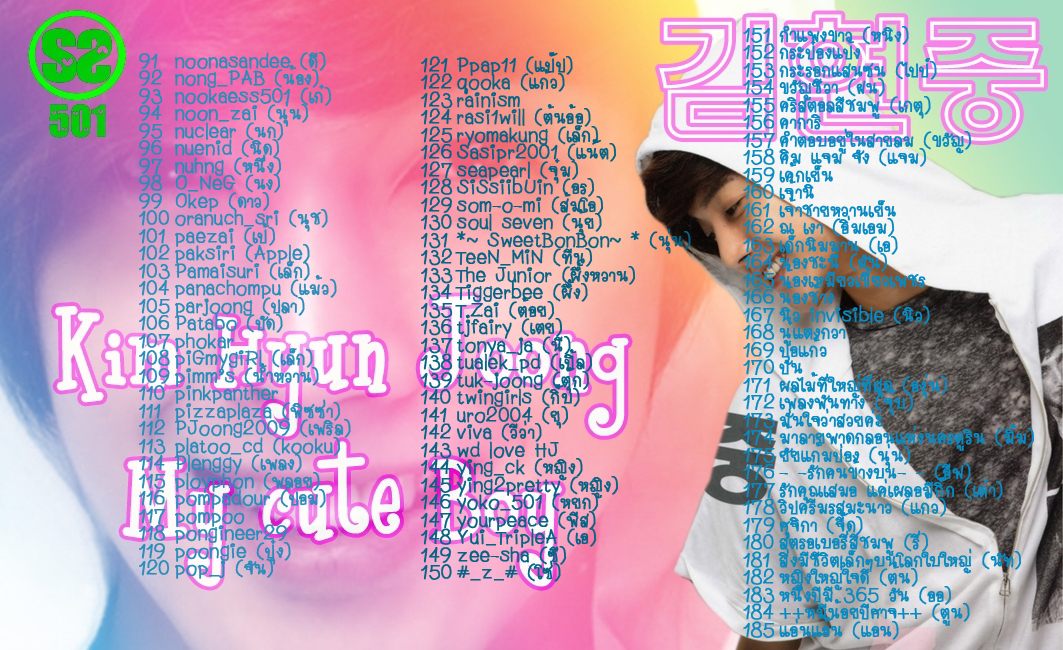 SS
501
김현중
Kim Hyun Joong
My cute Boy
91 noonasandee (ดี)
92 nong_PAB (น้อง)
93 nookaess501 (เก๋)
94 noon_zai (นุ่น)
95 nuclear (นก)
96 nuenid (นิด)
97 nuhng (หนึ่ง)
98 O_NeG (นง)
99 Okep (ดาว)
100 oranuch_sri (นุช)
101 paezai (เป)
102 paksiri (Apple)
103 Pamaisuri (เล็ก)
104 panachompu (แม้ว)
105 parjoong (ปลา)
106 Patabo (ปัด)
107 phokar
108 piGmygiRl (เล็ก)
109 pimm's (น้ำหวาน)
110 pinkpanther
111 pizzaplaza (พิซซ่า)
112 PJoong2009 (เพริล)
113 platoo_cd (kooku)
114 Plenggy (เพลง)
115 ploynoon (พลอย)
116 pompadour (ปอม)
117 pompoo
118 pongineer29
119 poongie (ปุ๋ง)
120 pop_j (จัน)
121 Ppap11 (แป๋ป)
122 qooka (แก้ว)
123 rainism
124 rasi1will (ต้นอ้อ)
125 ryomakung (เล็ก)
126 Sasipr2001 (แน็ต)
127 seapearl (จุ๋ม)
128 SiSsiibUin (อร)
129 som-o-mi (ส้มโอ)
130 soul seven (นุ้ย)
131 *~ SweetBonBon~ * (นุ่น)
132 TeeN_MiN (ทีน)
133 The Junior (ผึ้งหวาน)
134 Tiggerbee (ผึ้ง)
135 T.Zai (ต้อย)
136 tjfairy (เตย)
137 tonya_ja (นี)
138 tualek_pd (เปิ้ล)
139 tuk-joong (ตุ๊ก)
140 twingirls (กิ๊ป)
141 uro2004 (ยุ)
142 viva (วีว่า)
143 wd love HJ
144 ying_ck (หญิง)
145 ying2pretty (หญิง)
146 yoko_501 (หยก)
147 yourpeace (พีส)
148 Yui_TripleA (เอ)
149 zee-sha
150 #_z_#
151 กำแพงขาว (หนิง)
152 กระป๋องแป้ง
153 กระรอกแล่นซน (ไปป์)
154 ขวัญชีวา (ฝน)
155 คริสตอลสีชมพู (เกตุ)
156 คาการิ
157 คำตอบอยู่ในสายลม (ขวัญ)
158 คิม แจม จัง (แจม)
159 เค้กเย็น
160 เจานิ
161 เจ้าชายหวานเย็น
162 ณ เงา (อิ่มเอม)
163 เด็กนิมมาน (เอ)
164 น้องชะนี
165
166 น้องชาง
167 นิว invisible (นิว)
168 นู๋แตงกวา
169 ป๋อแก้ว
170 ปัน
171 ผลไม้ที่ใหญ่ที่สุด
172 เพลงพันทาง
173 มั่นใจว่าสวยค่ะ
174
175 ยัยแกมป่อง (นุ่น)
176 รักคนข้างบน
177 รักคุณเสมอ
178 วิปครีมรสมะนาว (แก้ว)
179 ศุจิกา (จี๊ด)
180 สตรอเบอรี่สีชมพู (รี่)
181 สิ่งมีชีวิตเล็กๆบนโลกใบใหญ่ (นัท)
182 หญิงใหญ่ใจดี (ตูน)
183 หนึ่งปีมี 365 วัน (ออ)
184 ++หนูน้อยปีศาจ++ (ตูน)
185 แอนแอน (แอน)